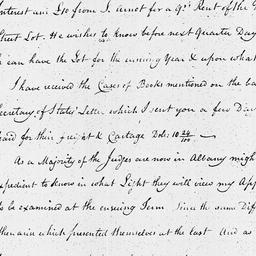 nterest and £10 from I. Arnot for a qr. Rent of the
Street Lot. He wishes to know before next Quarter Day
can have the Lot for the ensuing Year & upon what
I have received the Cases of Books mentioned on the ba
Secretary of States Letter which I sent you a few Day
paid for their freight & Cartage Dols: 10 24/100 —
As a Majority of the Judges are now in Albany migh
expedient to know in what Light they will view my App
to be examined at the ensuing Term. Since the same Diff
which presented themselves at the last And as